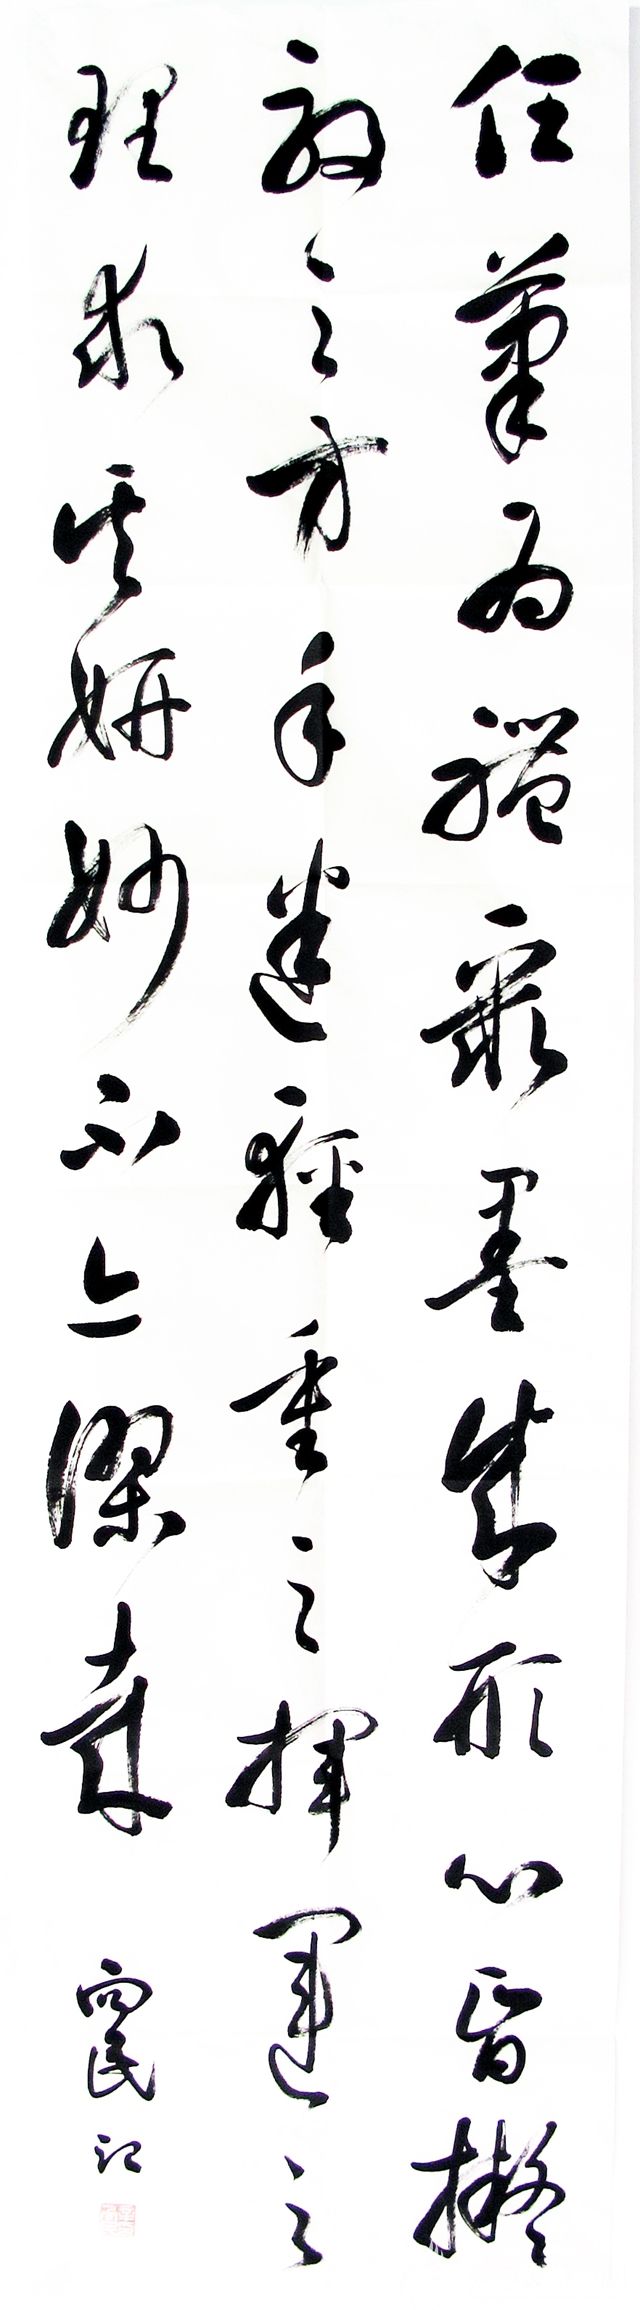 任筆為體聚墨成形心昏擬
效之方手迷輕重之揮運之
理求其妍妙不亦謬哉
向民記